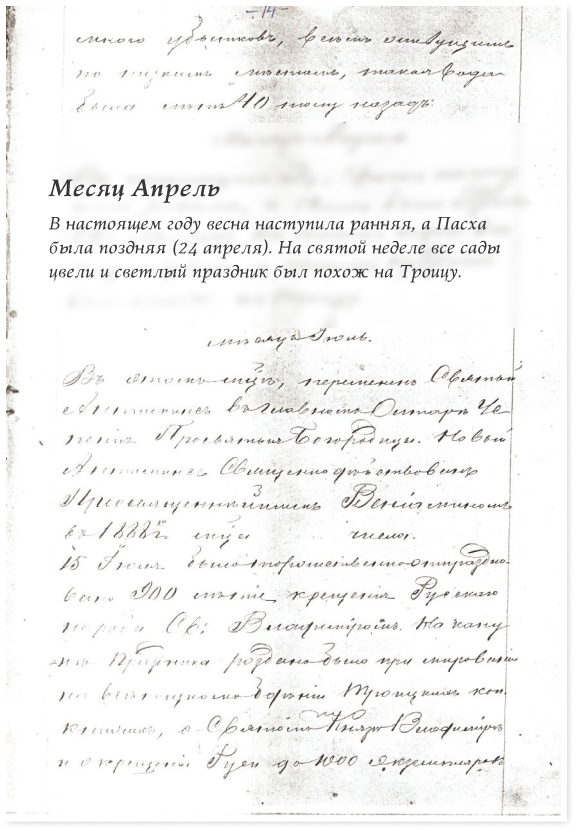 -14-
много убытковъ, всѣмъ
по низкимъ мѣстамъ, такая вода
была лѣтъ 40 тому назадъ.
Месяц Апрель
В настоящем году весна наступила ранняя, а Пасха
была поздняя (24 апреля). На святой неделе все сады
цвели и светлый праздник был похож на Троицу.
Июль.
Въ этомъ мцѣ, перемененъ Святый
Антиминсъ въ главномъ Олтарѣ
Пресвятыя Богородицы. Новый
Антиминсъ Священнодѣйствованъ
Преосвященнѣйшимъ Веніаминомъ
въ 1888 г. мца числа.
15 Іюля было торжественно отпраздно-
вано 900 лѣтіе крещенія Русскаго
народа Св: Владиміромъ. На кану
нѣ Праздника роздано было при мированіи
на всенощномъ бдѣніи Троицкихъ
о Святомъ Князѣ Владимірѣ
и о крещеніи Руси до 1000 экземпляровъ